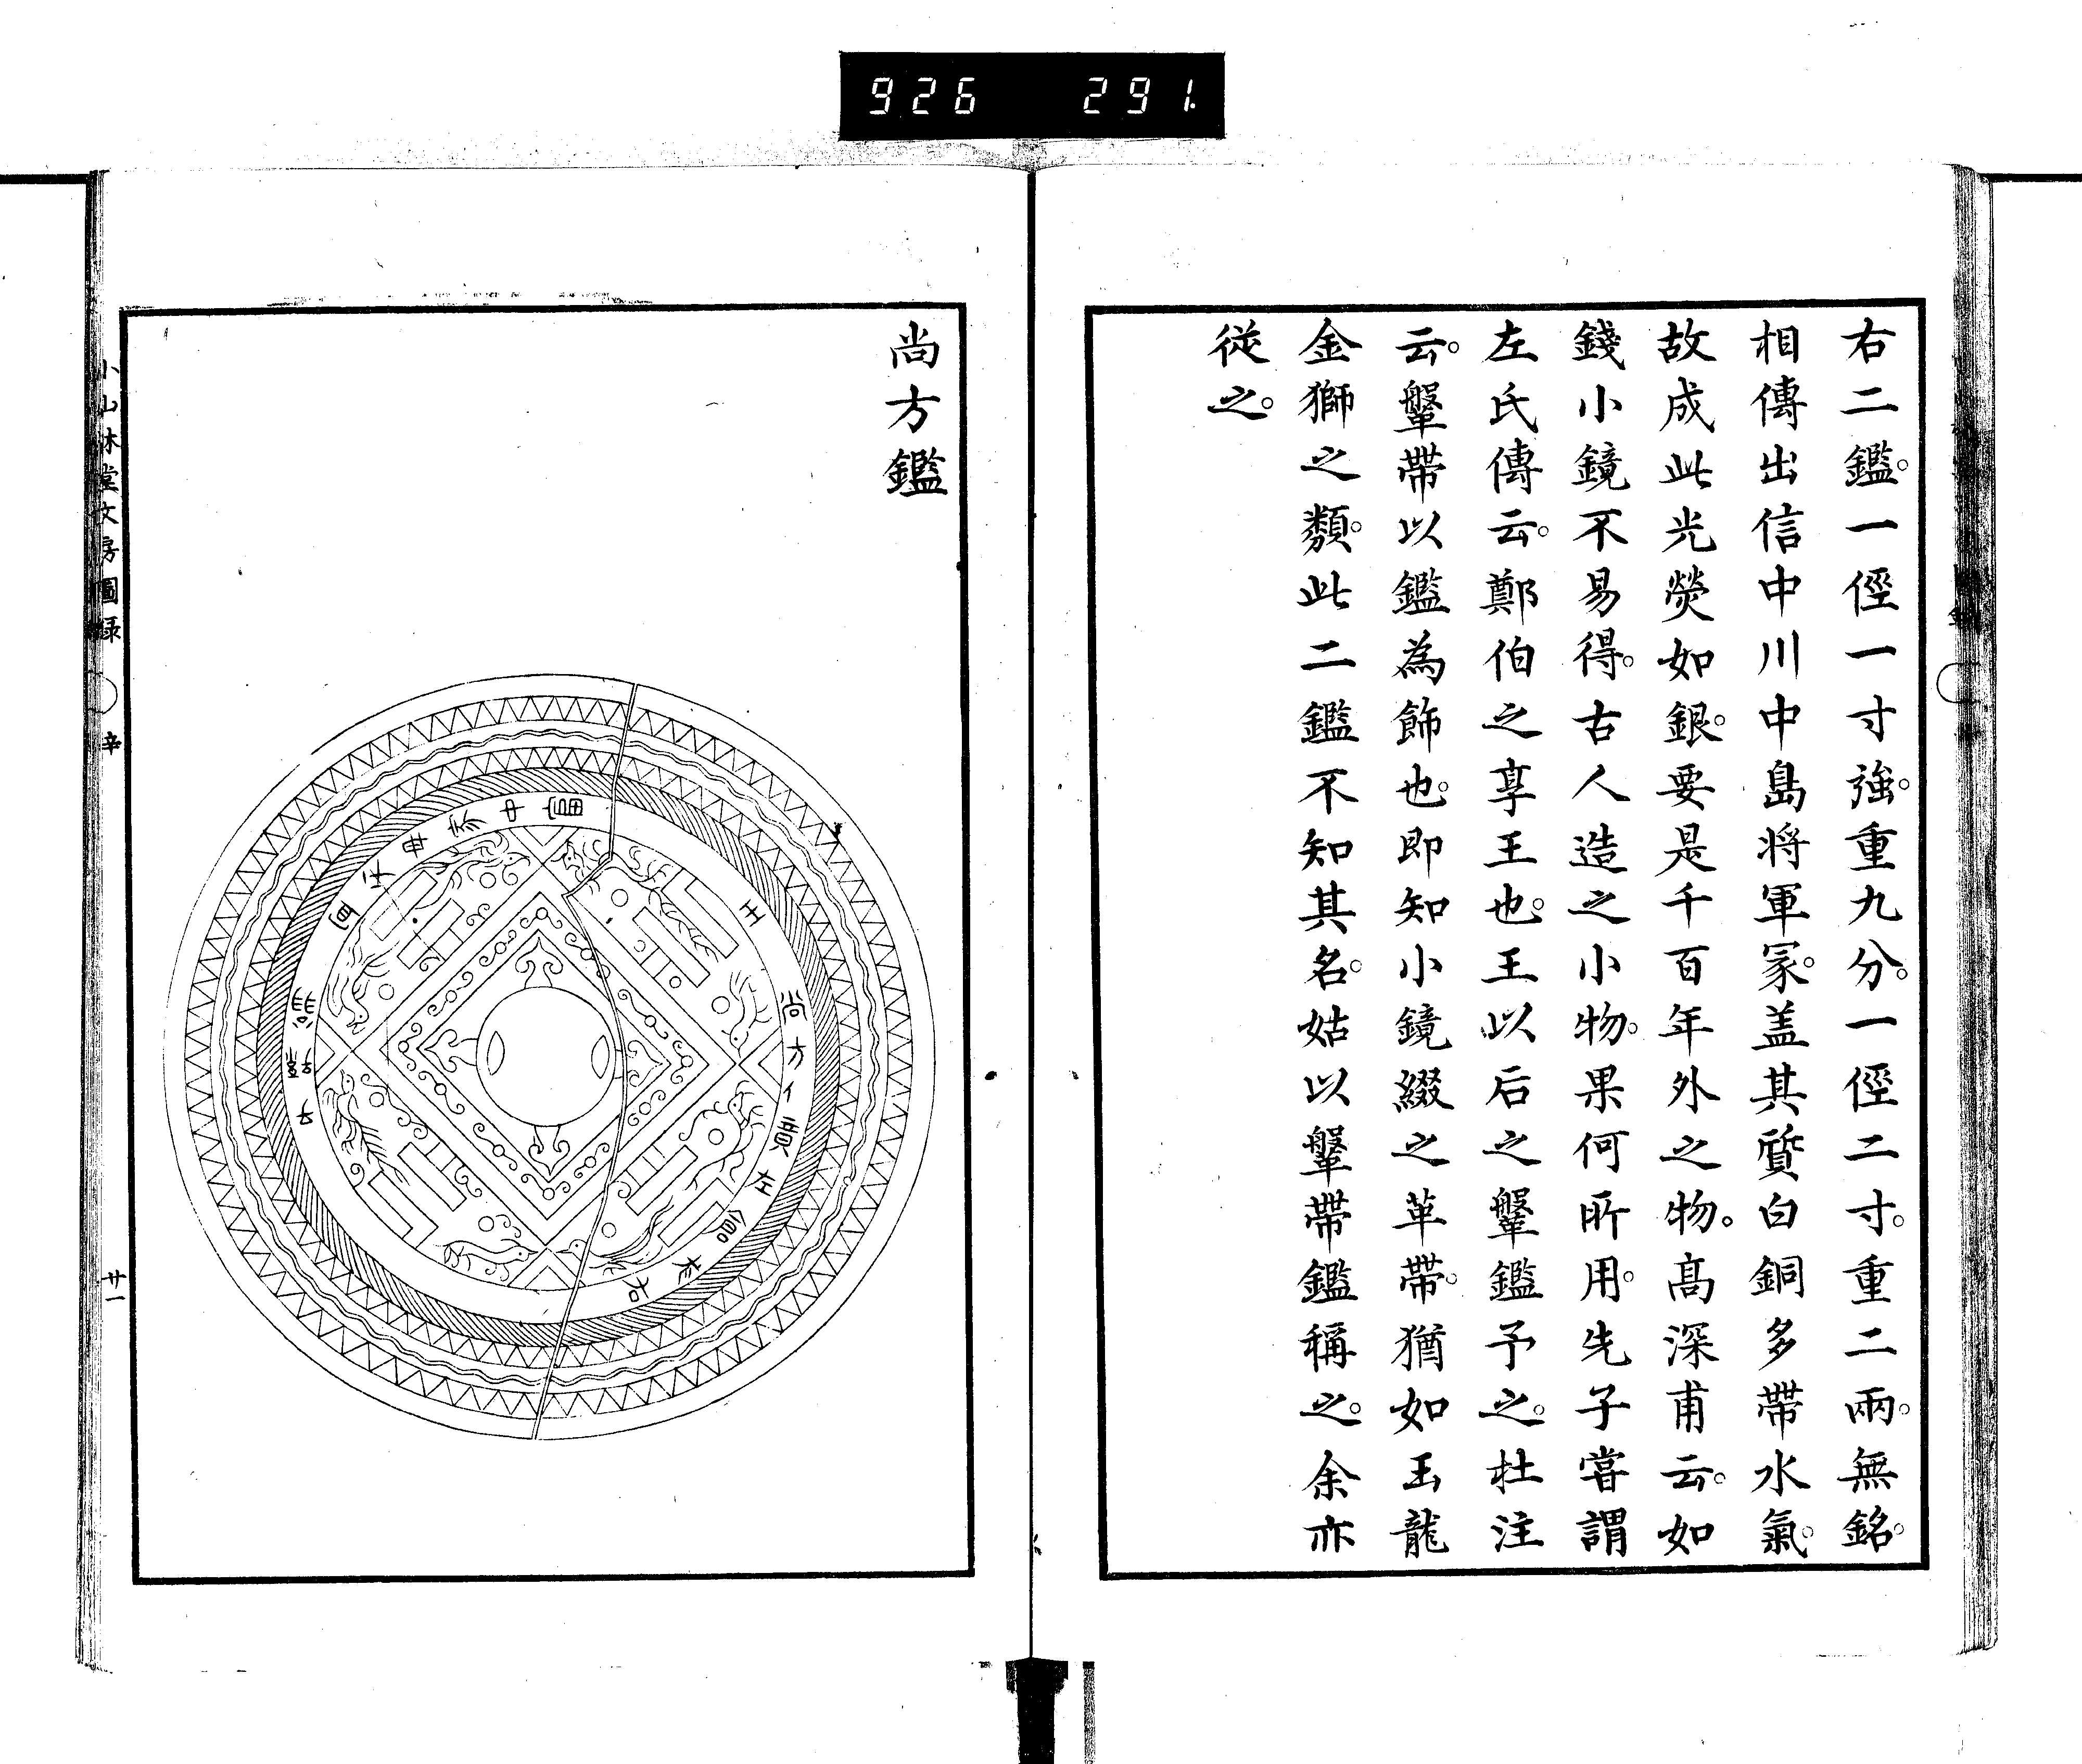 926 291.
右二鑑。一徑一寸強。重九分。一徑二寸。重二兩。無銘。
相傳出信中川中島將軍冢。盖其質白銅多帶水氣。
故成此光熒如銀。要是千百年外之物。髙深甫云。如
錢小鏡不易得。古人造之小物。果何所用。先子甞謂
左氏傳云。鄭伯之享王也。王以后之鞶鑑予之。杜注
云。鞶帶以鑑為飾也。即知小鏡綴之革帶。猶如玉龍
金獅之類。此二鑑不知其名。姑以鞶帶鑑稱之。余亦
從之。
尚方鑑
小山林堂文房圖録 辛 廿一